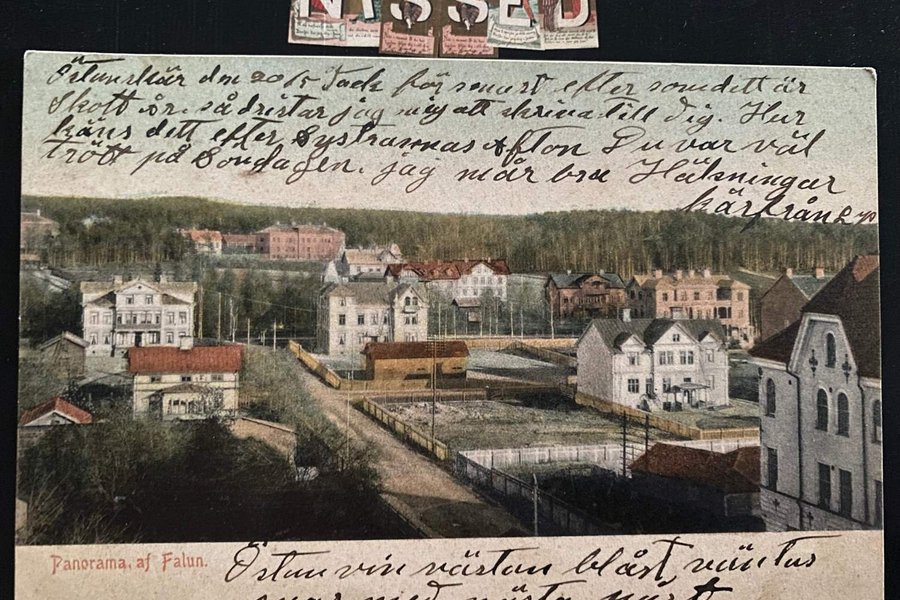 NYSSED
Östanskär den 20/5 Tack för senast efter som dett är
Skott År. så dristar jag mig att skriva till dig. Hur
käns dett efter Systrarnas Afton Du var väl
trött på Söndagen. jag mår bra Hälsningar
kär från
Panorama af Falun.
Östan vin västan blåst, väntas
svar med nästa post